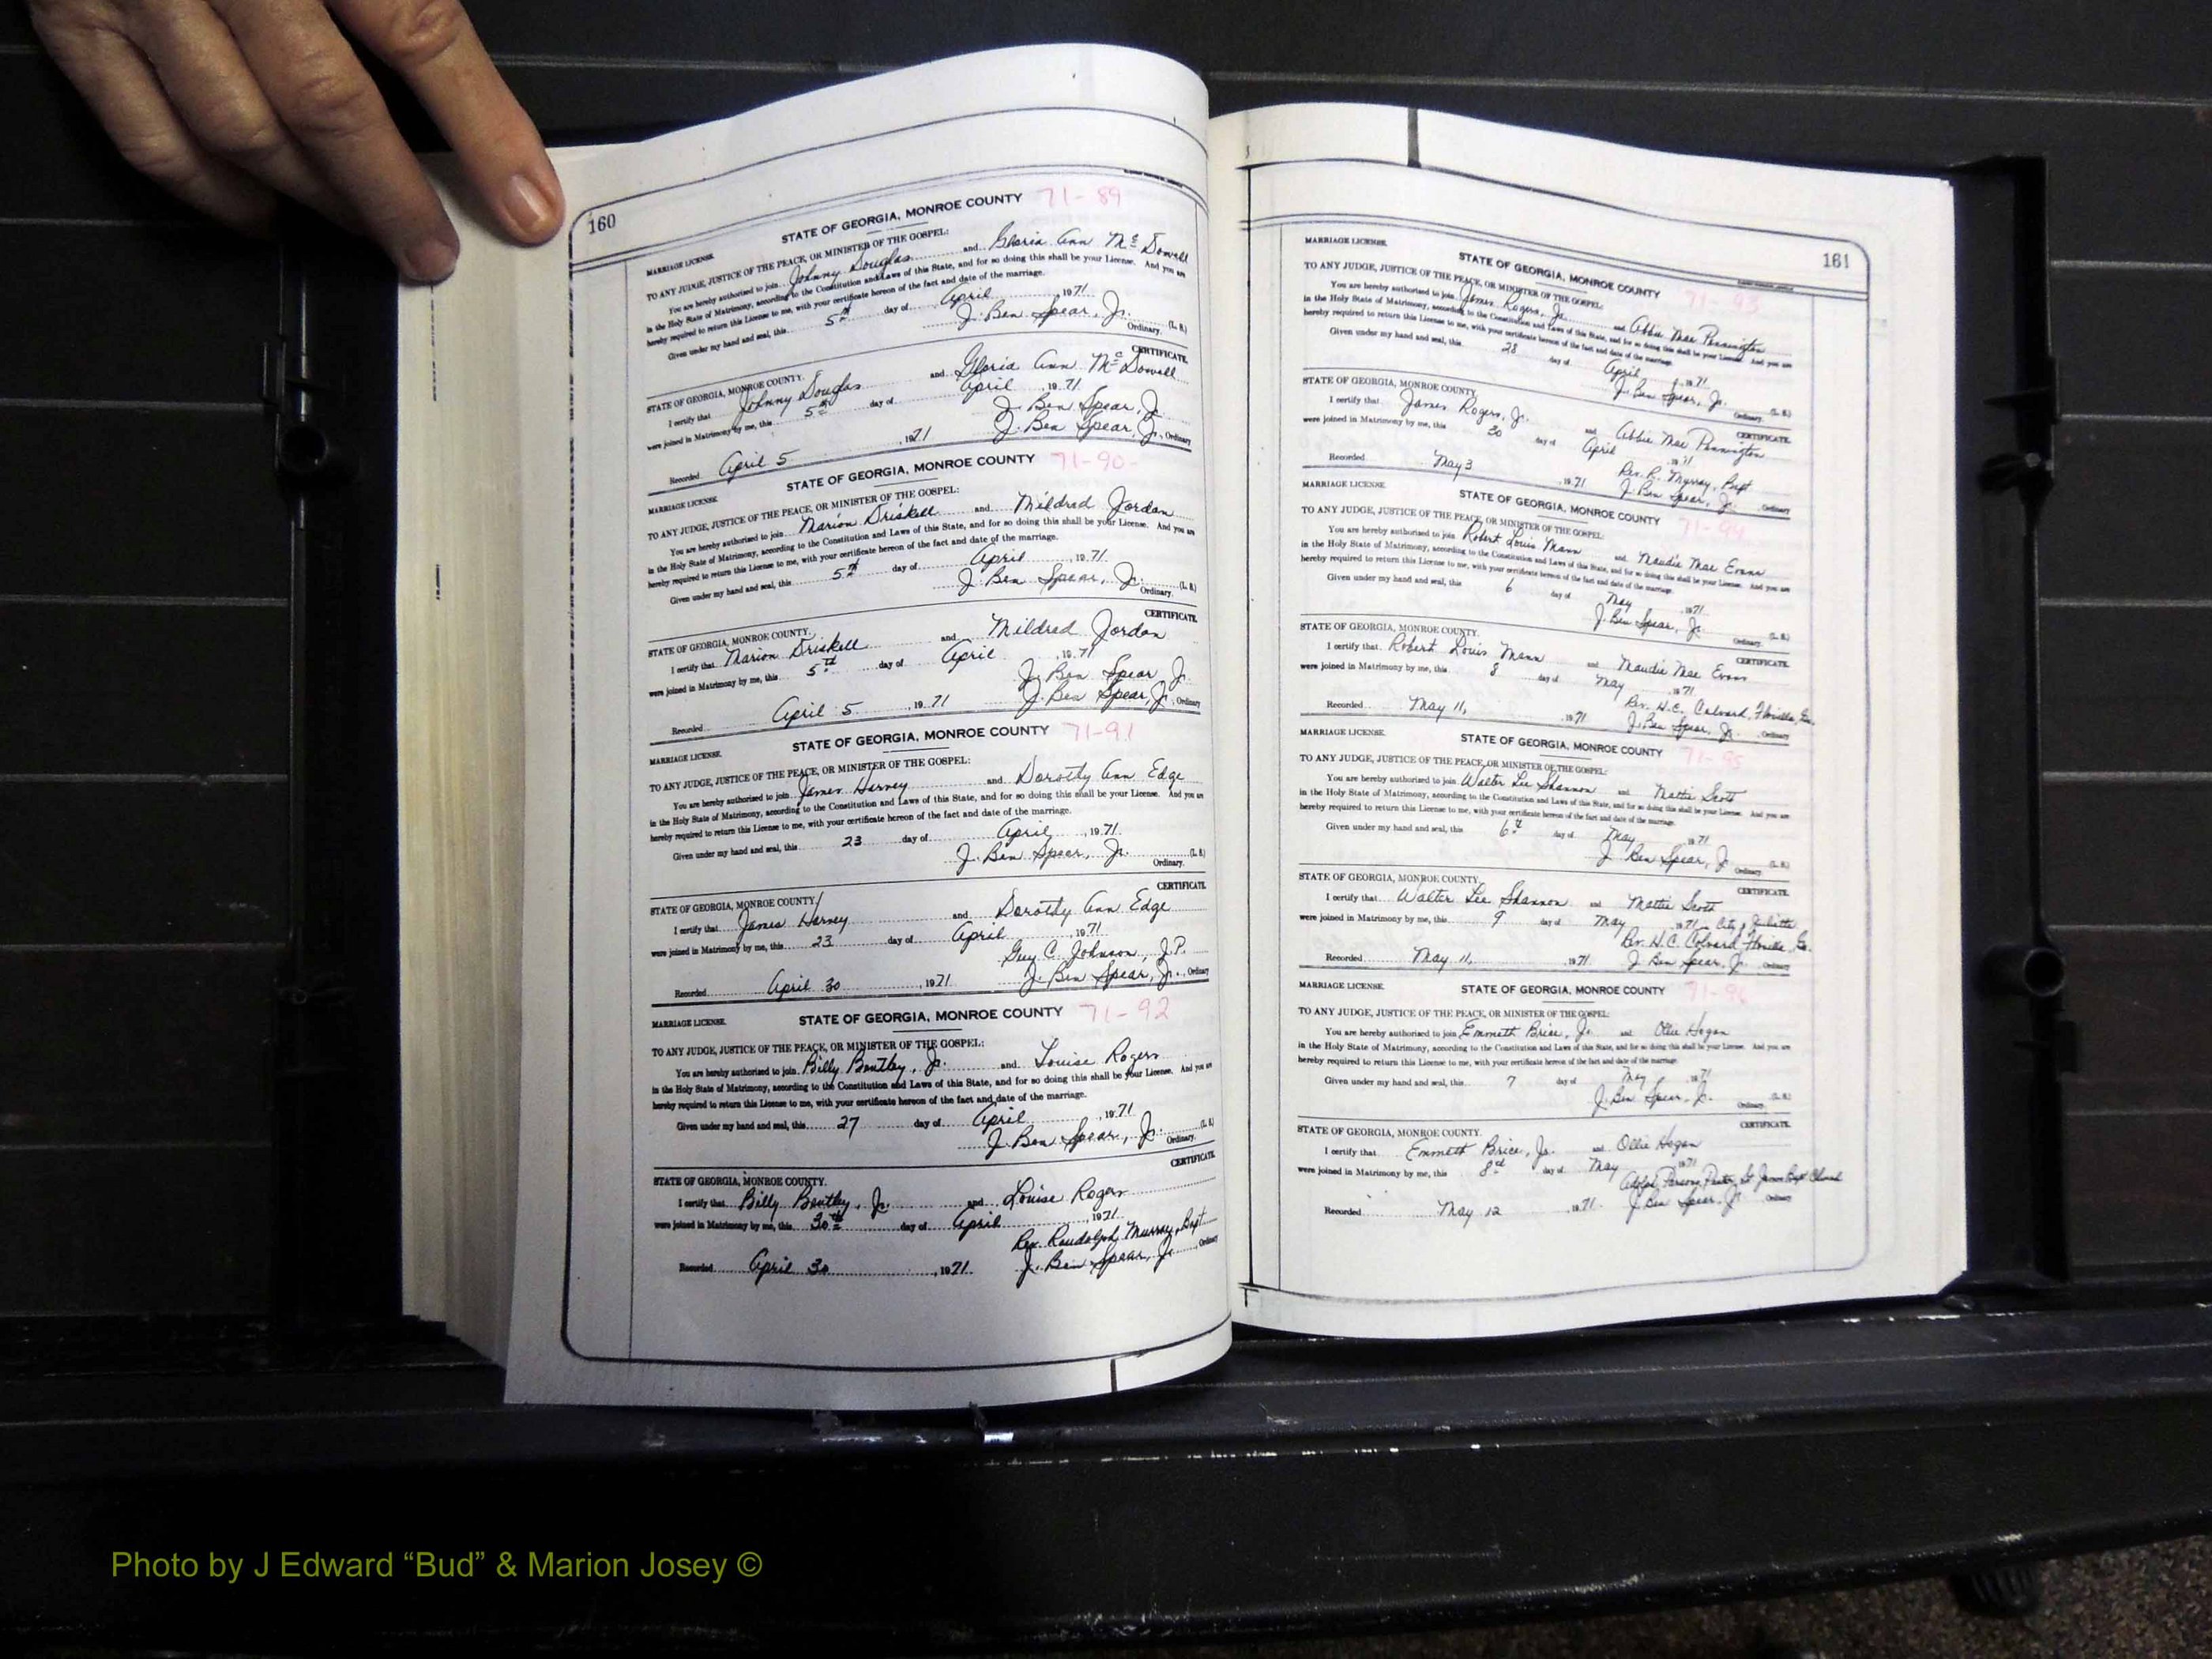 160
STATE OF GEORGIA, MONROE COUNTY 71-89
MARRIAGE LICENSE.
TO ANY JUDGE, JUSTICE OF THE PEACE, OR MINISTER OF THE GOSPEL:
You are hereby authorized to join Johnny Douglas and Gloria Ann McDowell
in the Holy State of Matrimony, according to the Constitution and Laws of this State, and for so doing this shall be your License. And you are
hereby required to return this License to me, with your certificate hereon of the fact and date of the marriage.
Given under my hand and seal, this 5th day of April, 1971
J. Ben Spear, Jr. (L. S.)
Ordinary.
CERTIFICATE.
STATE OF GEORGIA, MONROE COUNTY.
I certify that Johnny Douglas and Gloria Ann McDowell
were joined in Matrimony by me, this 5th day of April, 1971
J. Ben Spear, Jr.
Recorded April 5, 1971 J. Ben Spear, Jr., Ordinary
STATE OF GEORGIA, MONROE COUNTY 71-90-
MARRIAGE LICENSE.
TO ANY JUDGE, JUSTICE OF THE PEACE, OR MINISTER OF THE GOSPEL:
You are hereby authorized to join Marion Driskell and Mildred Jordan
in the Holy State of Matrimony, according to the Constitution and Laws of this State, and for so doing this shall be your License. And you are
hereby required to return this License to me, with your certificate hereon of the fact and date of the marriage.
Given under my hand and seal, this 5th day of April, 1971
J. Ben Spear, Jr. (L. S.)
Ordinary.
CERTIFICATE.
STATE OF GEORGIA, MONROE COUNTY.
I certify that Marion Driskell and Mildred Jordan
were joined in Matrimony by me, this 5th day of April, 1971
J. Ben Spear Jr.
Recorded April 5, 1971 J. Ben Spear, Jr., Ordinary
STATE OF GEORGIA, MONROE COUNTY 71-91
MARRIAGE LICENSE.
TO ANY JUDGE, JUSTICE OF THE PEACE, OR MINISTER OF THE GOSPEL:
You are hereby authorized to join James Harvey and Dorothy Ann Edge
in the Holy State of Matrimony, according to the Constitution and Laws of this State, and for so doing this shall be your License. And you are
hereby required to return this License to me, with your certificate hereon of the fact and date of the marriage.
Given under my hand and seal, this 23 day of April, 1971
J. Ben Spear, Jr. (L. S.)
Ordinary.
CERTIFICATE.
STATE OF GEORGIA, MONROE COUNTY
I certify that James Harvey and Dorothy Ann Edge
were joined in Matrimony by me, this 23 day of April, 1971
Guy C. Johnson, J.P.
Recorded April 30, 1971 J. Ben Spear, Jr., Ordinary
STATE OF GEORGIA, MONROE COUNTY 71-92
MARRIAGE LICENSE.
TO ANY JUDGE, JUSTICE OF THE PEACE, OR MINISTER OF THE GOSPEL:
You are hereby authorized to join Billy Bentley, Jr. and Louise Rogers
in the Holy State of Matrimony, according to the Constitution and Laws of this State, and for so doing this shall be your License. And you are
hereby required to return this License to me, with your certificate hereon of the fact and date of the marriage.
Given under my hand and seal, this 27 day of April, 1971
J. Ben Spear, Jr. (L. S.)
Ordinary.
CERTIFICATE.
STATE OF GEORGIA, MONROE COUNTY.
I certify that Billy Bentley, Jr. and Louise Rogers
were joined in Matrimony by me, this 30th day of April, 1971
Rev. Randolph Murray, Bapt
Recorded April 30, 1971 J. Ben Spear, Jr., Ordinary
161
MARRIAGE LICENSE. STATE OF GEORGIA, MONROE COUNTY 71-93
TO ANY JUDGE, JUSTICE OF THE PEACE, OR MINISTER OF THE GOSPEL:
You are hereby authorized to join James Rogers, Jr. and Abbie Mae Pennington
in the Holy State of Matrimony, according to the Constitution and Laws of this State, and for so doing this shall be your License. And you are
hereby required to return this License to me, with your certificate hereon of the fact and date of the marriage.
Given under my hand and seal, this 28 day of April, 1971
J. Ben Spear, Jr. (L. S.)
Ordinary.
STATE OF GEORGIA, MONROE COUNTY. CERTIFICATE.
I certify that James Rogers, Jr. and Abbie Mae Pennington
were joined in Matrimony by me, this 30 day of April, 1971
Rev. R. Murray, Bapt
Recorded May 3, 1971 J. Ben Spear, Jr. Ordinary
MARRIAGE LICENSE. STATE OF GEORGIA, MONROE COUNTY 71-94
TO ANY JUDGE, JUSTICE OF THE PEACE, OR MINISTER OF THE GOSPEL:
You are hereby authorized to join Robert Louis Mann and Maudie Mae Evans
in the Holy State of Matrimony, according to the Constitution and Laws of this State, and for so doing this shall be your License. And you are
hereby required to return this License to me, with your certificate hereon of the fact and date of the marriage.
Given under my hand and seal, this 6 day of May, 1971
J. Ben Spear, Jr. (L. S.)
Ordinary.
STATE OF GEORGIA, MONROE COUNTY. CERTIFICATE.
I certify that Robert Louis Mann and Maudie Mae Evans
were joined in Matrimony by me, this 8 day of May, 1971
Rev. H.C. Colvard, Flovilla, Ga.
Recorded May 11, 1971 J. Ben Spear, Jr. Ordinary
MARRIAGE LICENSE. STATE OF GEORGIA, MONROE COUNTY 71-95
TO ANY JUDGE, JUSTICE OF THE PEACE, OR MINISTER OF THE GOSPEL:
You are hereby authorized to join Walter Lee Shannon and Mattie Scott
in the Holy State of Matrimony, according to the Constitution and Laws of this State, and for so doing this shall be your License. And you are
hereby required to return this License to me, with your certificate hereon of the fact and date of the marriage.
Given under my hand and seal, this 6th day of May, 1971
J. Ben Spear, Jr. (L. S.)
Ordinary.
STATE OF GEORGIA, MONROE COUNTY. CERTIFICATE.
I certify that Walter Lee Shannon and Mattie Scott
were joined in Matrimony by me, this 9 day of May 1971 City of Juliette
Rev. H.C. Colvard, Flovilla, Ga.
Recorded May 11, 1971 J. Ben Spear, Jr. Ordinary
MARRIAGE LICENSE. STATE OF GEORGIA, MONROE COUNTY 71-96
TO ANY JUDGE, JUSTICE OF THE PEACE, OR MINISTER OF THE GOSPEL:
You are hereby authorized to join Emmett Brice, Jr. and Ollie Hogan
in the Holy State of Matrimony, according to the Constitution and Laws of this State, and for so doing this shall be your License. And you are
hereby required to return this License to me, with your certificate hereon of the fact and date of the marriage.
Given under my hand and seal, this 7 day of May, 1971
J. Ben Spear, Jr. (L. S.)
Ordinary.
CERTIFICATE.
STATE OF GEORGIA, MONROE COUNTY.
I certify that Emmett Brice, Jr. and Ollie Hogan
were joined in Matrimony by me, this 8th day of May 1971
Adolph Parson, Pastor, St James Bapt Church
Recorded May 12, 1971 J. Ben Spear, Jr. Ordinary
Photo by J Edward “Bud” & Marion Josey ©